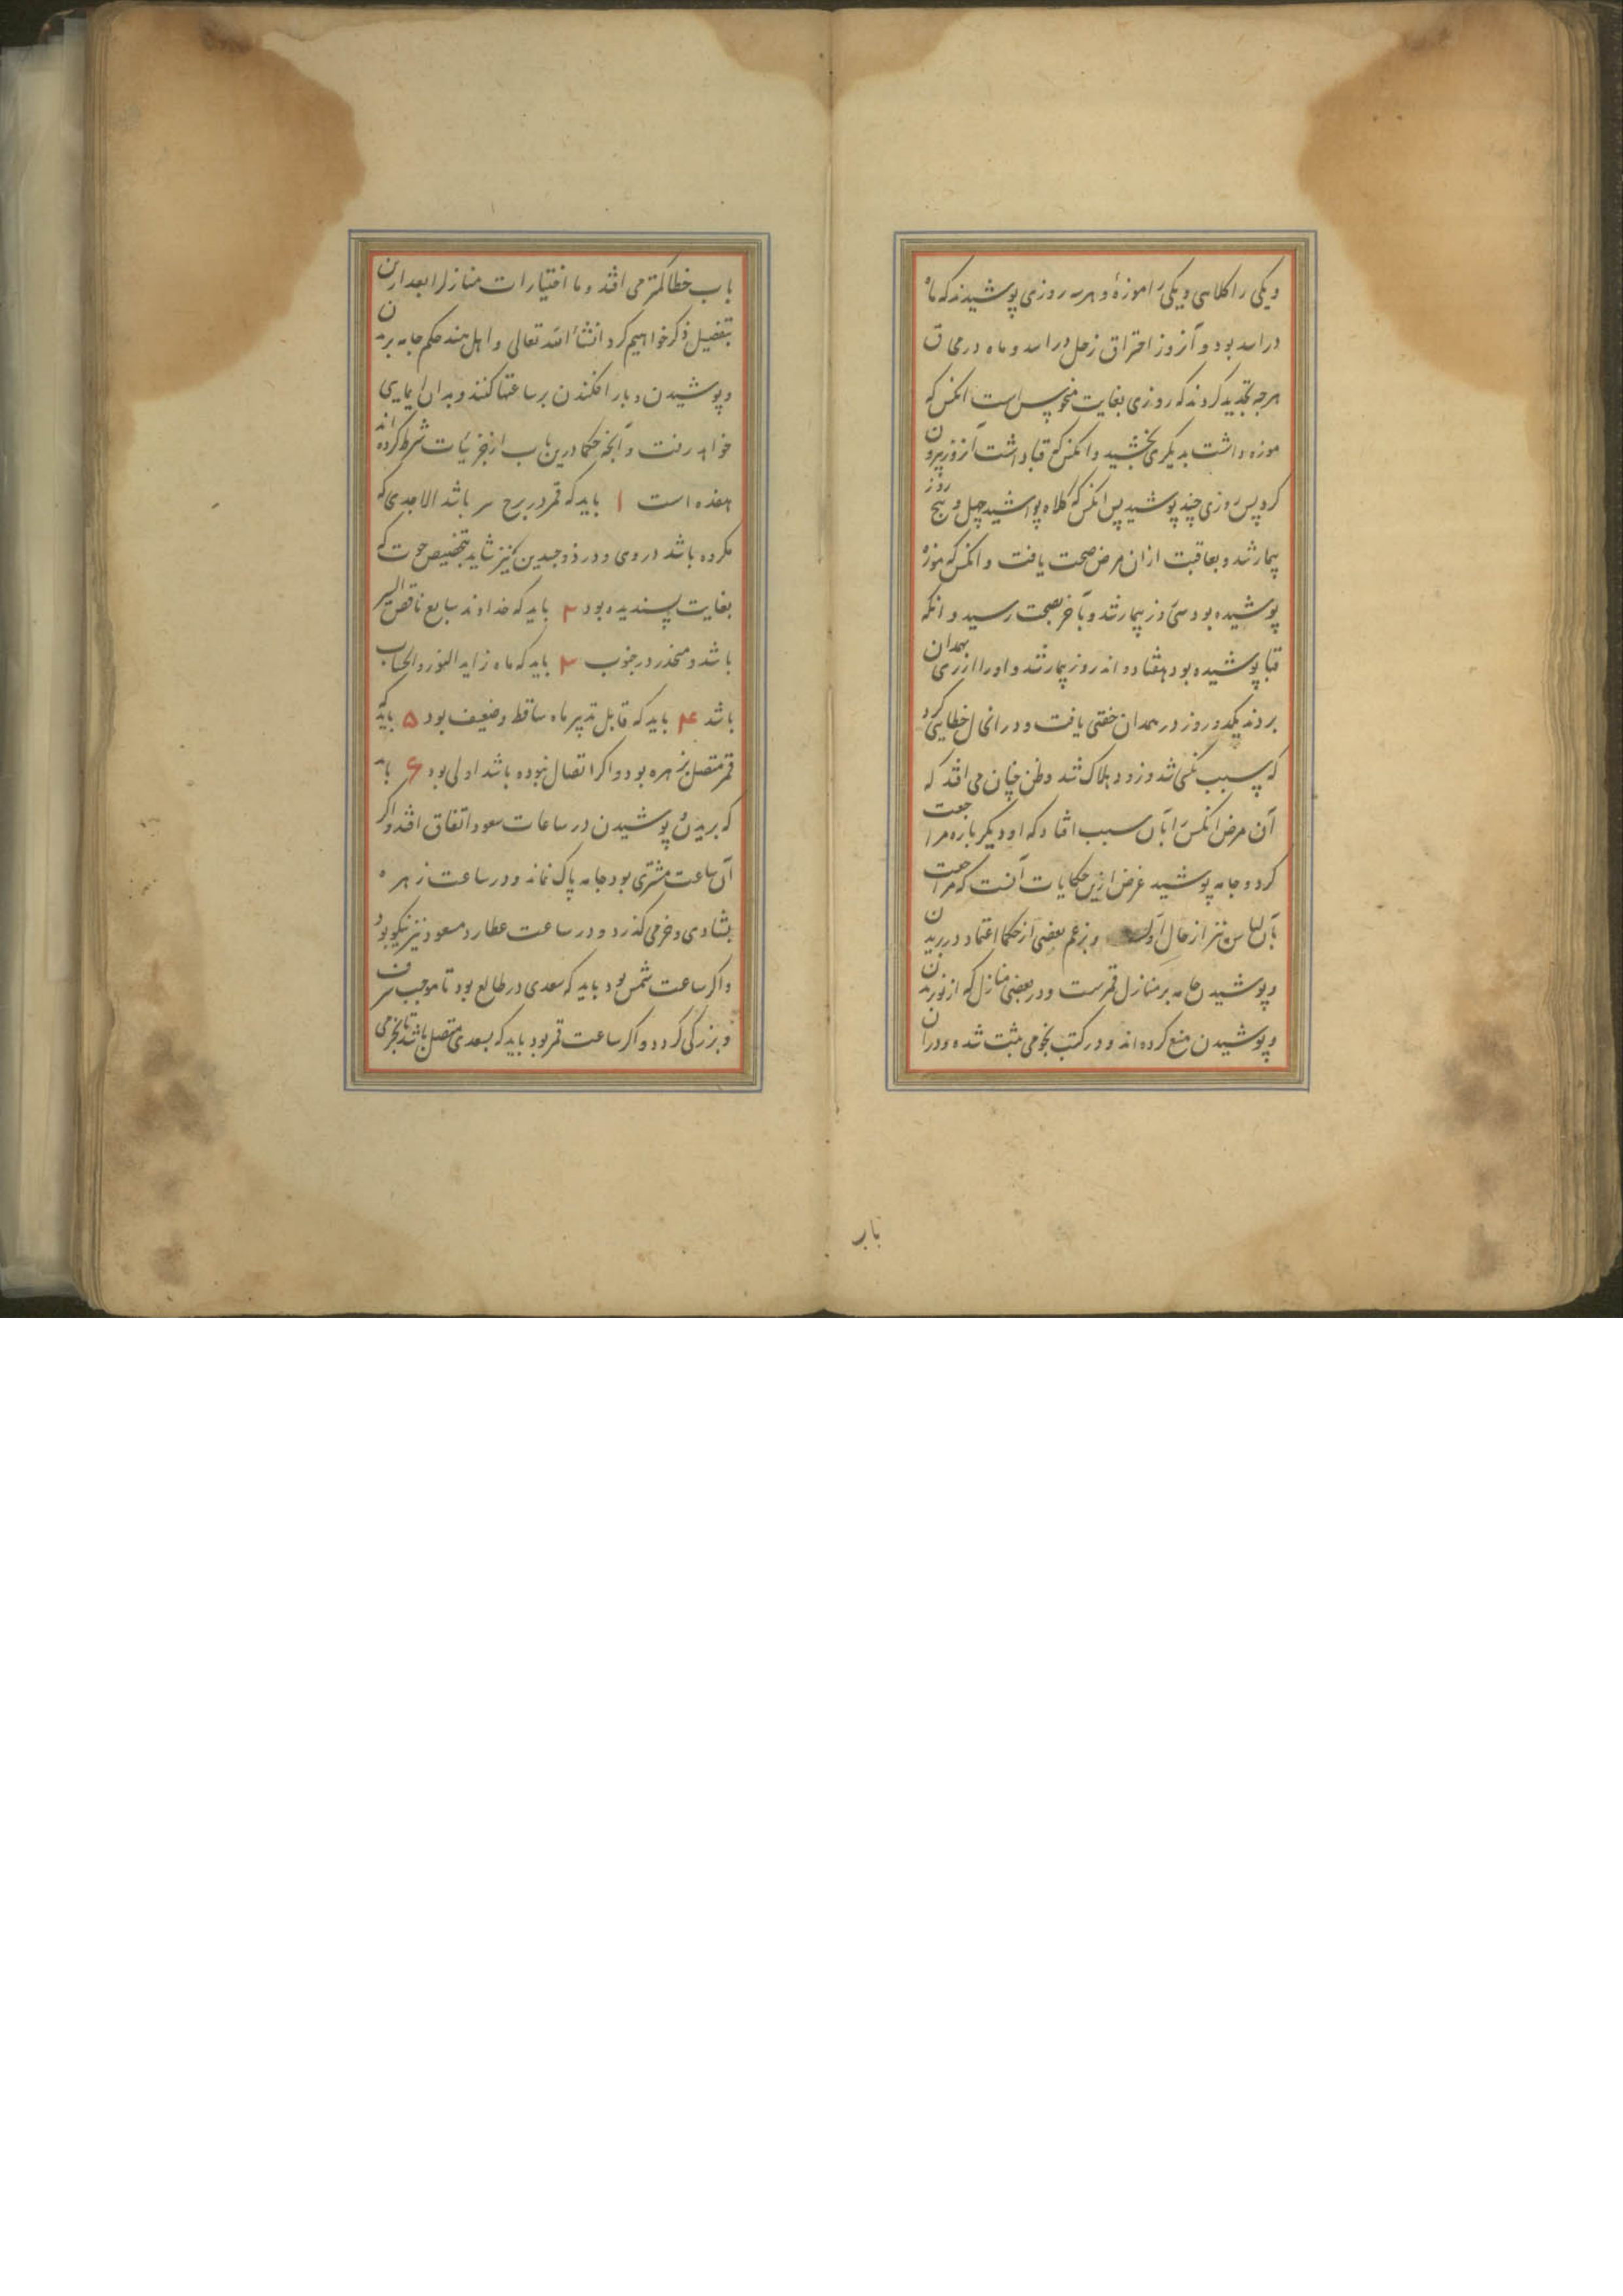 و یکی را کلاهی و یکی را موزهٔ و هر سه روزی پوشیدند که ماه
در اسد بود و آنروز احتراق زحل در اسد و ماه در محاق
هرچه تجدید کردند که روزی بغایت منحوس است انکس که
موزه داشت بدیکری بخشید و انکس که قبا داشت آنروز بیرون
کرد پس روزی چند پوشید پس انکس که کلاه پوشید چهل و پنج روز
بیمار شد و بعاقبت از ان مرض صحت یافت و انکس که موزه
پوشیده بود سی روز بیمار شد و بآخر بصحت رسید و انکه
قبا پوشیده بود هفتاد و اند روز بیمار شد و او را از ری بهمدان
بردند یکدو روز در همدان خفتی یافت و در انحال خطایی کرد
که بسبب نکس شد و زود هلاک شد وظن چنان می افتد که
آن مرض انکس را بآن سبب افتاد که او دیکر باره مراجعت
کرد و جامه پوشید غرض ازین حکایات آنست که مراجعت
بآن لباس بتر از حال اول و بزعم بعضی از حکما اعتماد در بریدن
و پوشیدن جامه بر منازل قمرست و در بعضی منازل که از نوبریدن
و پوشیدن منع کرده اند و در کتب نجومی مثبت شده و دران
باب
باب خطا کمتر می افتد و ما اختیارات منازل را بعد ازین
بتفصیل ذکر خواهیم کرد انشأ الله تعالی و اهل هند حکم جامه بریدن
و پوشیدن و بار افکندن بر ساعتها کنند و بدان ایمایی
خواهد رفت و آنچه حکما درین باب از جزئیات شرط کرده اند
اینده است ۱ باید که قمر در برج باشد الا جدی که
مکروه باشد در وی و در ذو جسدین نیز شاید بتخصیص حوت که
بغایت پسندیده بود ۲ باید که خداوند سابع ناقص السیر
باشد و منحدر در جنوب ۳ باید که ماه زاید النور و الحساب
باشد ۴ باید که قابل تدبیر ماه ساقط وضعیف بود ۵ باید که
قمر متصل بزهره بود و اکر اتصال نبوده باشد اولی بود ۶ باید
که بریدن و پوشیدن در ساعات سعود اتفاق افتد و اکر
آن ساعت مشتری بود جامه پاک نماند و در ساعت زهره
بشادی و خرمی کذرد و در ساعت عطارد مسعود نیز نیکو بود
و اکر ساعت شمس بود باید که سعدی در طالع بود تا موجب شرف
و بزرکی کردد و اکر ساعت قمر بود باید که بسعدی متصل باشد تا بخرمی